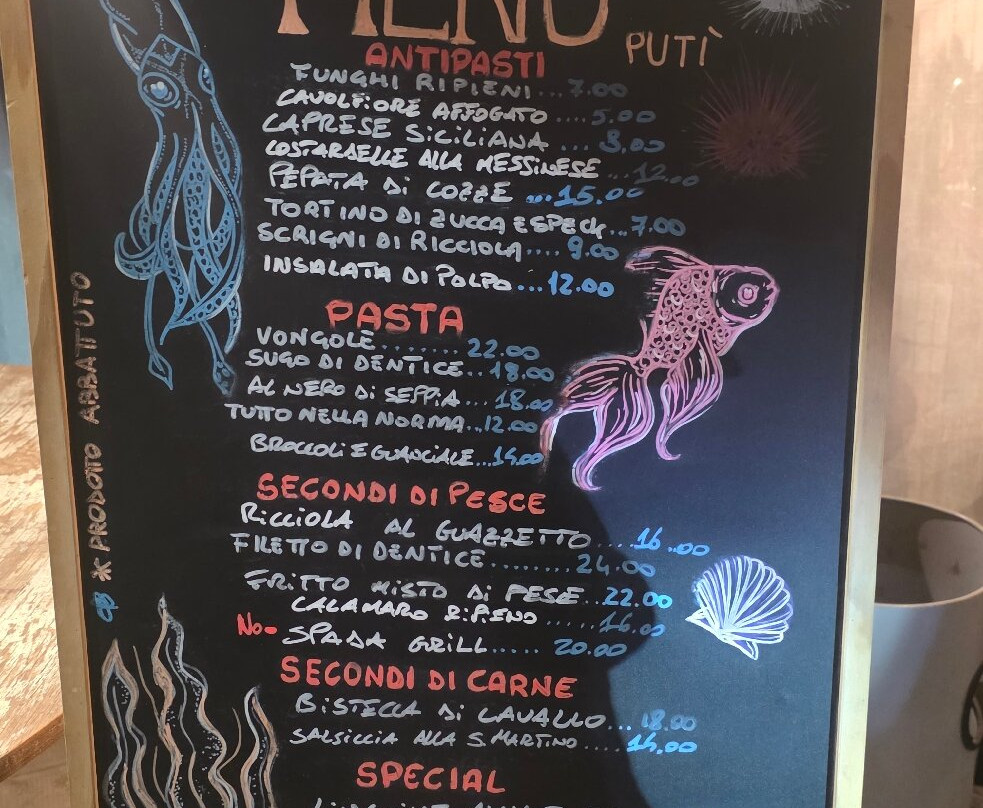 MENU
PUTÌ
ANTIPASTI
FUNGHI RIPIENI...7.00
CAVOLFIORE AFFOGATO ....5.00
CAPRESE SICILIANA ...8.00
COSTARDELLE ALLA MESSINESE ...12.00
PEPATA DI COZZE ...15.00
TORTINO DI ZUCCA E SPECK...7.00
SCRIGNI DI RICCIOLA....9.00
INSALATA DI POLPO...12.00
PASTA
VONGOLE........22.00
SUGO DI DENTICE..18.00
AL NERO DI SEPPIA...18.00
TUTTO NELLA NORMA...12.00
BROCCOLI E GUANCIALE...14.00
SECONDI DI PESCE
RICCIOLA AL GUAZZETTO....16.00
FILETTO DI DENTICE........24.00
FRITTO MISTO DI PESE..22.00
CALAMARO RIPIENO.....16.00
NO- SPADA GRILL..... 20.00
SECONDI DI CARNE
BISTECCA DI CAVALLO...18.00
SALSICCIA ALLA S. MARTINO....14.00
SPECIAL
* PRODOTO ABBATTUTO